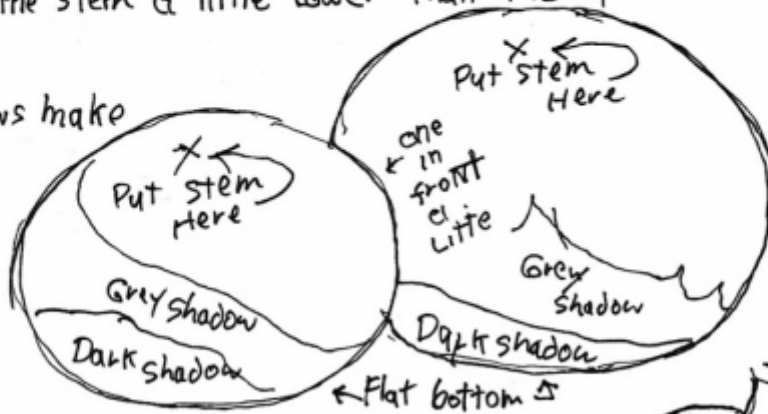 the stem a little lower than
ws make
Put stem
Here
Put stem
Here
one
in
front
a
Litte
Grey shadow
Dark shadow
Grey
shadow
Dark shadow
Flat bottom